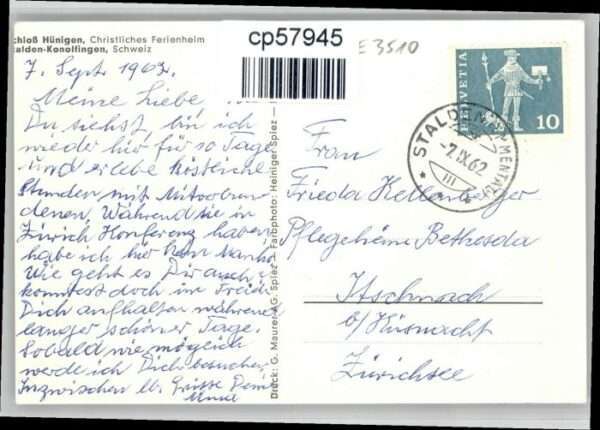 chloß Hünigen, Christliches Ferienheim
talden-Konolfingen, Schweiz
cp57945
E 3510
HELVETIA
10
STALDEN
-7.IX.62
III
7. Sept. 1962.
Meine Liebe,
Du siehst, bin ich
wieder hier für 10 Tage
und erlebe köstliche
Stunden mit
denen, Während sie in
Zürich Konferenz haben,
habe ich hier
Wie geht es Dir auch,
konntest doch in
Dich aufhalten während
langer schöner Tage.
Sobald wie möglich
werde ich Dich besuchen,
Inzwischen lb. Grüsse Deine
Druck: G. Maurer AG. Spiez - Farbphoto: Heiniger Spiez
Frau
Frieda Kellenberger
Pflegeheim Bethesda
Itschnach
b/Küsnacht
Zürichsee